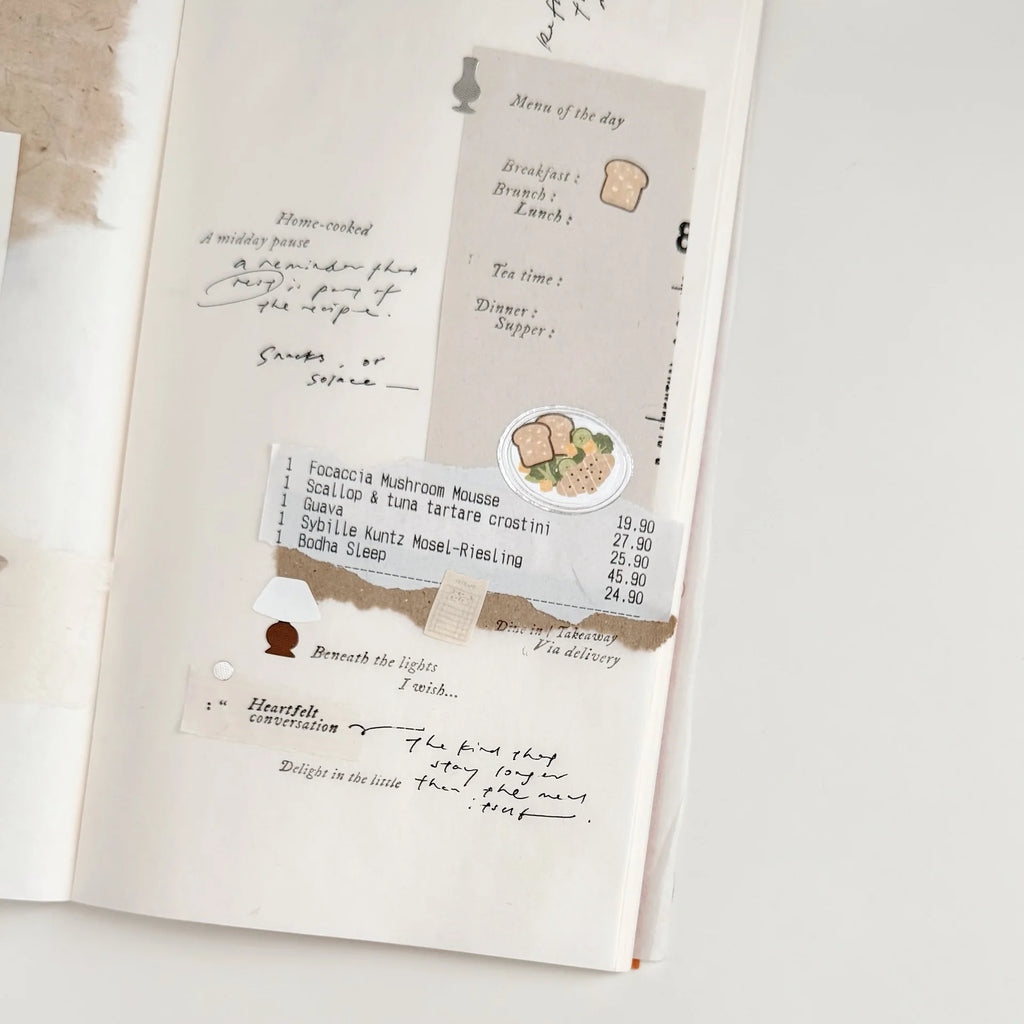 Menu of the day
Breakfast :
Brunch :
Lunch :
Tea time :
Dinner :
Supper :
8
Home-cooked
A midday pause
a reminder that
rest is part of
the recipe.
Snacks, or
solace —
1 Focaccia Mushroom Mousse 19.90
1 Scallop & tuna tartare crostini 27.90
1 Guava 25.90
1 Sybille Kuntz Mosel-Riesling 45.90
1 Bodha Sleep 24.90
Dine in / Takeaway
Via delivery
Beneath the lights
I wish...
: “ Heartfelt
conversation
the kind that
stay longer
than the meal
itself.
Delight in the little